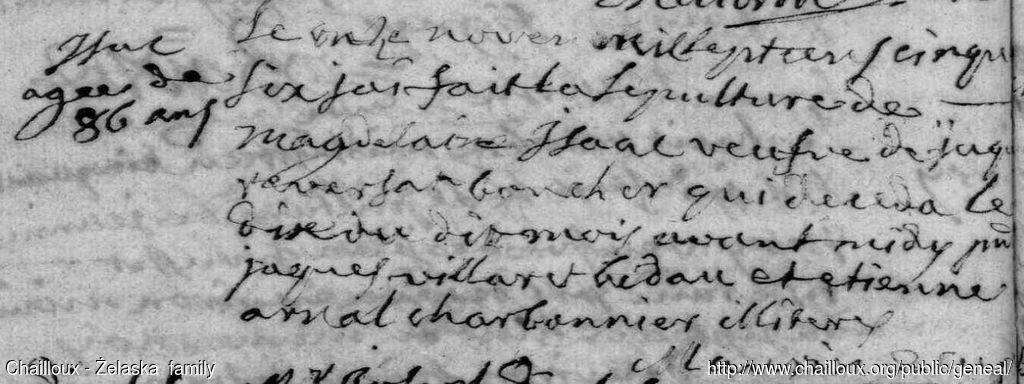 Isac
agee de
86 ans
Le onze novem millesept cens cinqu
six jai fait la sepulture de
magdelaine Isaac veufve de jaqu
reversat boucher qui deceda le
dix du dit mois avant midy
jaques villaret bedau et etienne
arnal charbonnier illiteres
Chailloux - Żelaska family
http://www.chailloux.org/public/geneal/